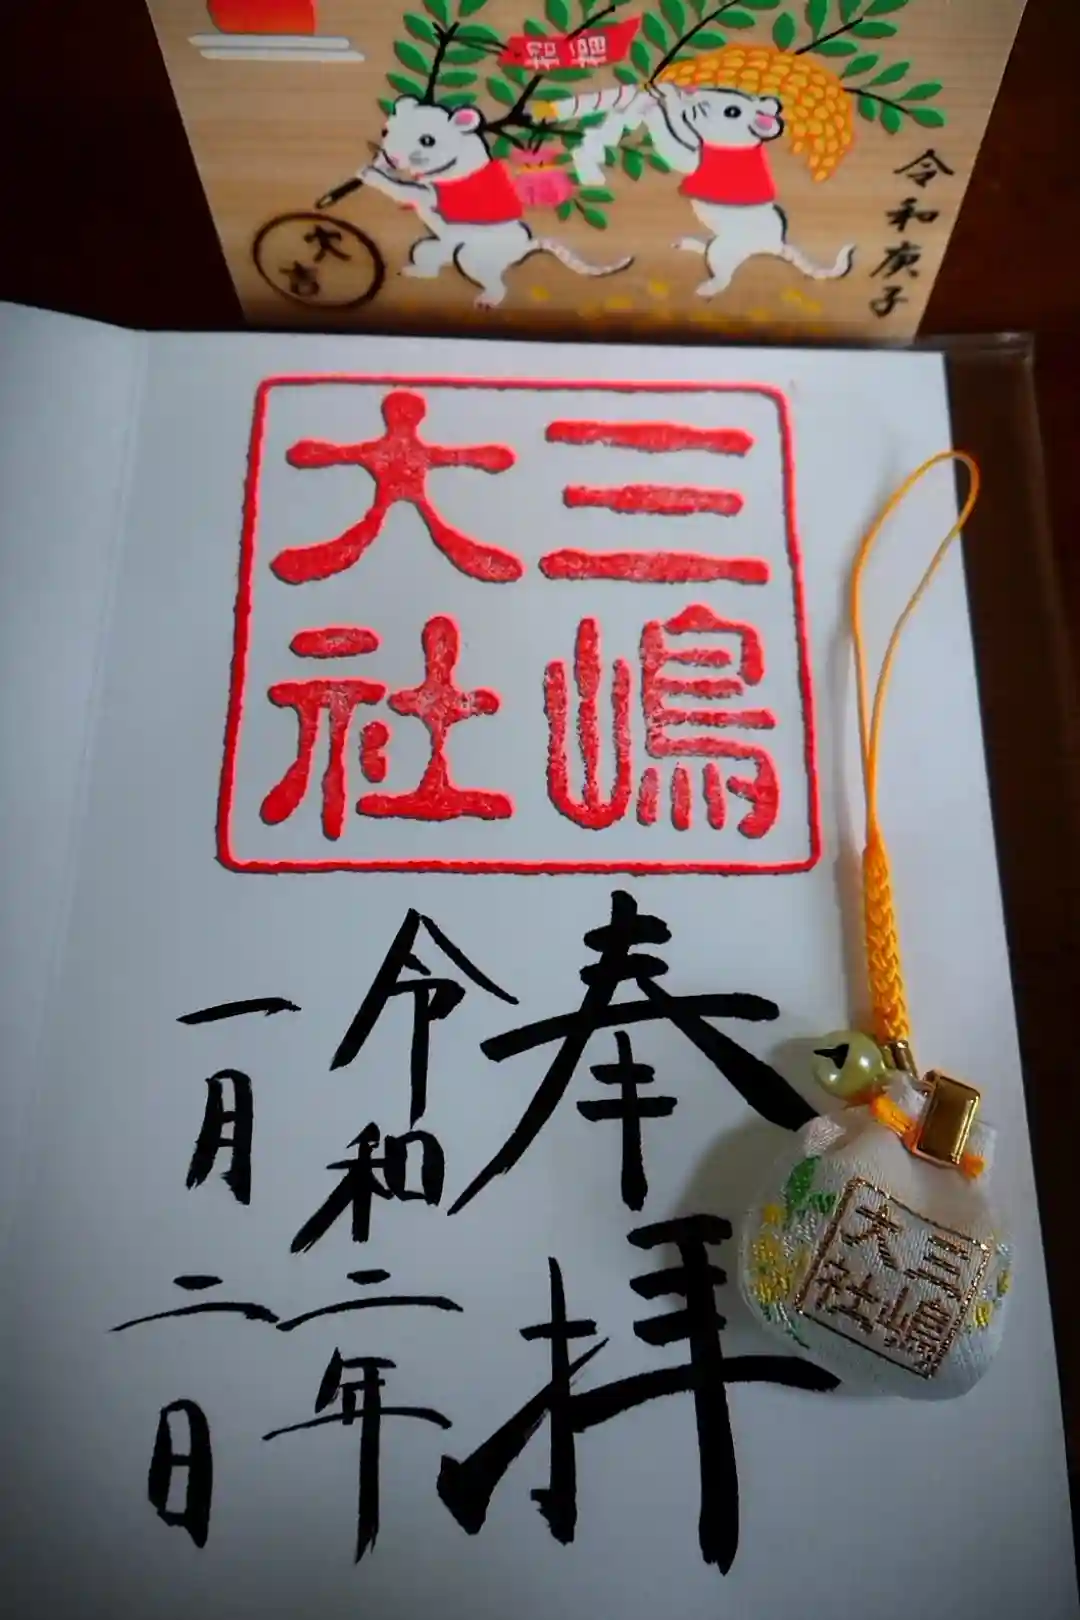 招福
大吉
令和庚子
三嶋
大社
奉拝
令和二年
一月二日
三嶋
大社